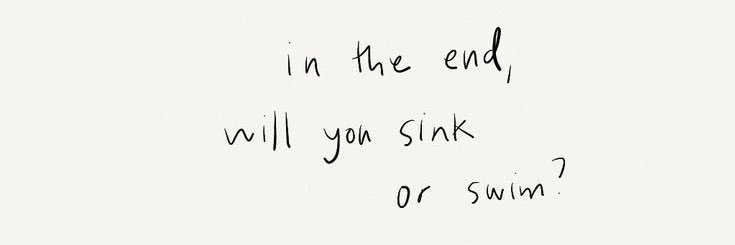 in the end,
will you sink
or swim?